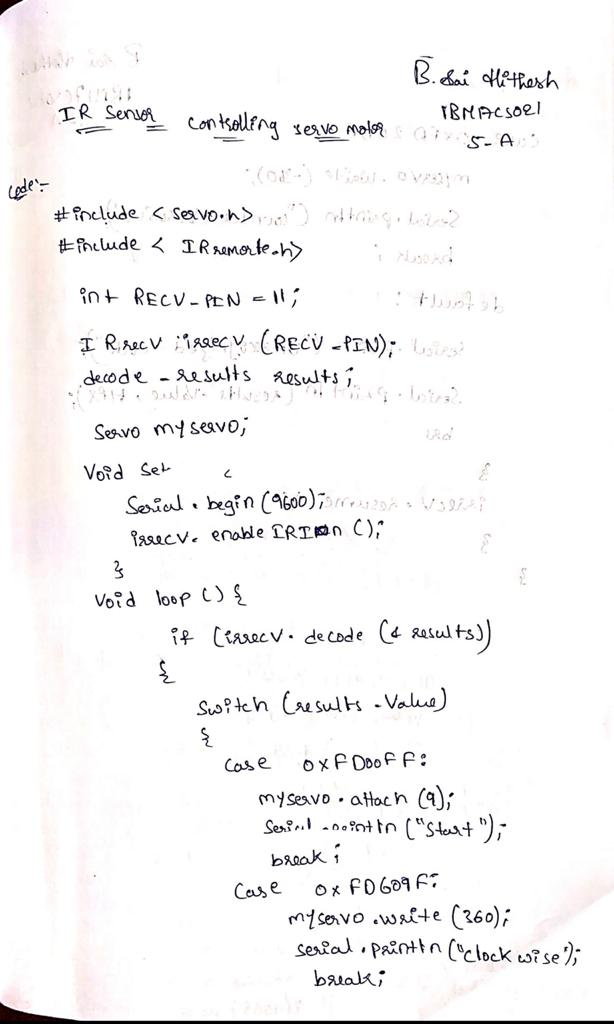 B. Sai Hithesh
IR Sensor controlling servo motor
1BMACS021
5-A
code:-
#include <servo.h>
#include < IRremorte.h>
int RECV-PIN = 11;
IRrecv irrecv (RECV-PIN);
decode-results results;
Servo myservo;
Void set
Serial.begin(9600);
irrecv. enable IRIn ();
}
Void loop () {
if (irrecv. decode (& results))
{
Switch (results.Value)
{
Case 0xFD00FF:
myservo.attach (9);
Serial.println ("Start");
break;
Case 0xFD609F:
myservo.write (360);
serial.println ("clock wise");
break;